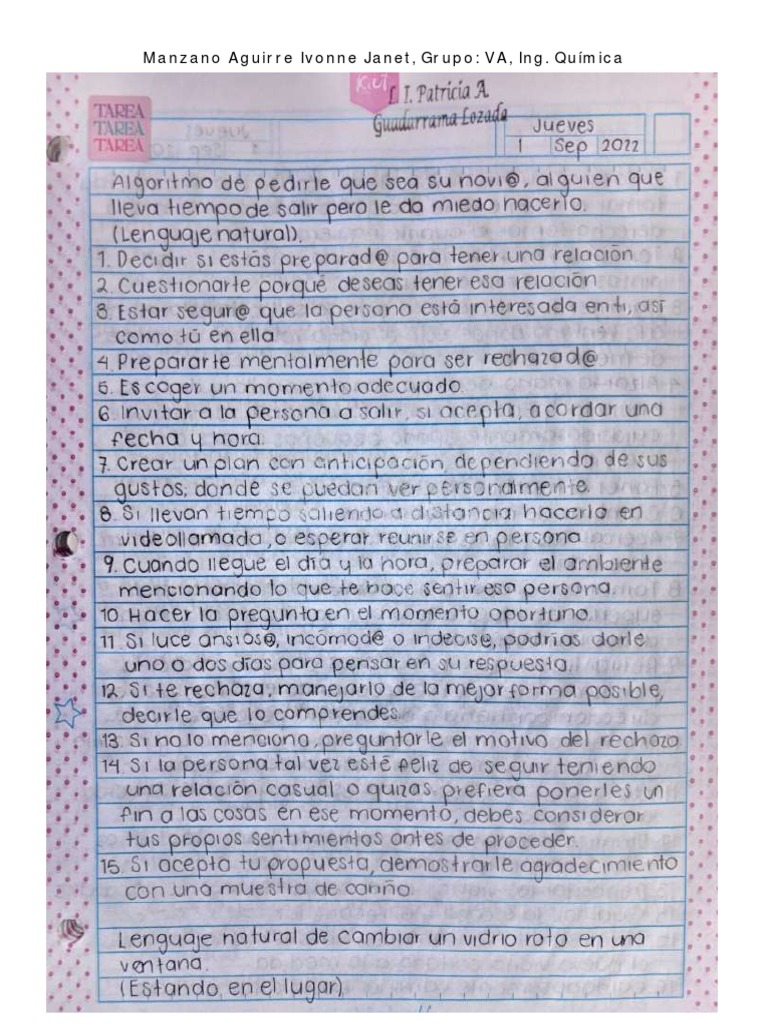 Manzano Aguirre Ivonne Janet, Grupo: VA, Ing. Química
K.U.T
L. I. Patricia A.
Guadarrama Lozada
TAREA
TAREA
TAREA
Jueves
1 Sep 2022
Algoritmo de pedirle que sea su novi@, alguien que
lleva tiempo de salir pero le da miedo hacerlo.
(Lenguaje natural).
1. Decidir si estás preparad@ para tener una relación
2. Cuestionarte porqué deseas tener esa relación
3. Estar segur@ que la persona está interesada en ti, así
como tú en ella
4. Prepararte mentalmente para ser rechazad@
5. Escoger un momento adecuado.
6. Invitar a la persona a salir, si acepta, acordar una
fecha y hora.
7. Crear un plan con anticipación, dependiendo de sus
gustos, donde se puedan ver personalmente.
8. Si llevan tiempo saliendo a distancia hacerlo en
videollamada, o esperar reunirse en persona
9. Cuando llegue el día y la hora, preparar el ambiente
mencionando lo que te hace sentir esa persona.
10. Hacer la pregunta en el momento oportuno.
11. Si luce ansios@, incómod@ o indecise, podrías darle
uno o dos días para pensar en su respuesta.
12. Si te rechaza, manejarlo de la mejor forma posible,
decirle que lo comprendes.
13. Si no lo menciona, preguntarle el motivo del rechazo
14. Si la persona tal vez esté feliz de seguir teniendo
una relación casual o quizas prefiera ponerles un
fin a las cosas en ese momento, debes considerar
tus propios sentimientos antes de proceder.
15. Si acepta tu propuesta, demostrarle agradecimiento
con una muestra de cariño.
Lenguaje natural de cambiar un vidrio roto en una
ventana.
(Estando en el lugar)